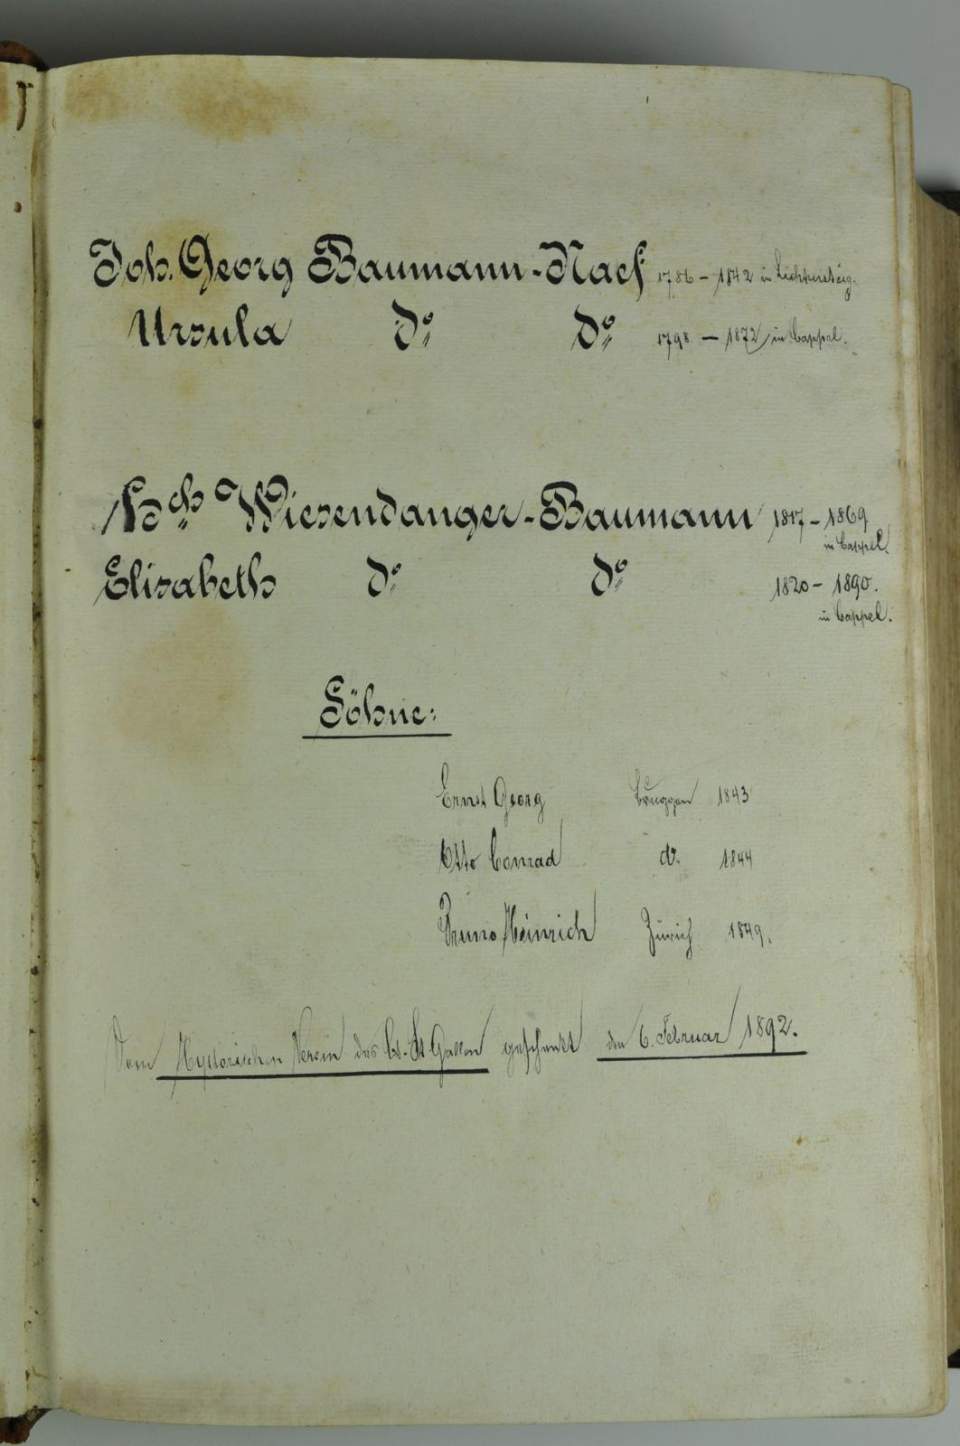 Joh. Georg Baumann-Naef 1786 – 1842 in Lichtensteig.
Ursula do do 1798 – 1872 in Cappel.
Hch Wiesendanger-Baumann 1817 – 1869
in Cappel.
Elisabeth do do 1820 – 1890.
in Cappel.
Söhne:
Ernst Georg Bruggen 1843
Otto Conrad do. 1844
Bruno Heinrich Zürich 1849.
Vom Hystorischen Verein des Ct. St Gallen geschenkt den 6. Februar 1892.